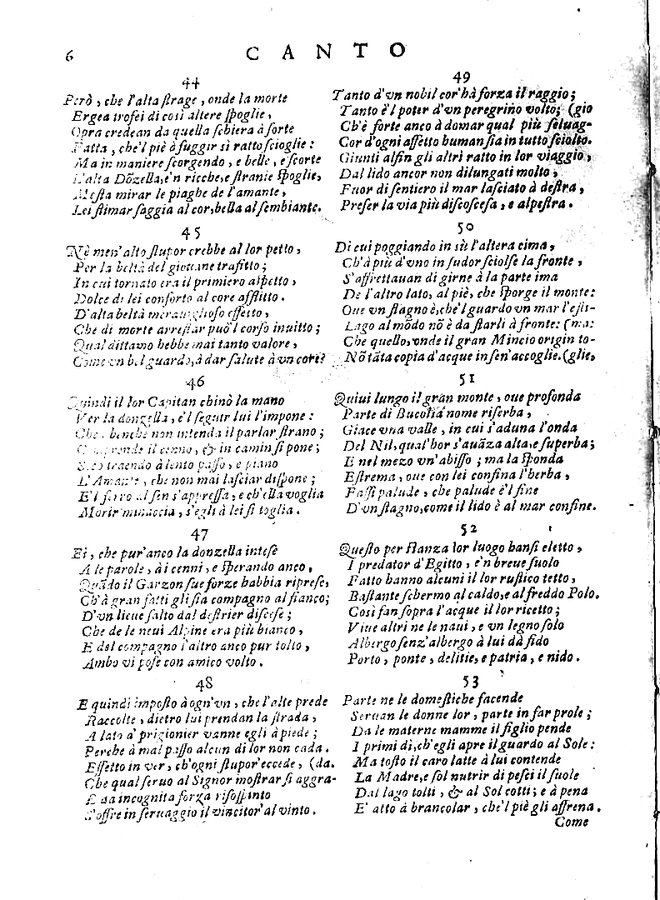 6
CANTO
44
Però, che l'alta ſtrage, onde la morte
Ergea trofei di così altere ſpoglie,
Opra credean da quella ſchiera à ſorte
Fatta, che'l piè à fuggir sì ratto ſcioglie:
Ma in maniere ſcorgendo, e belle, e ſcorte
L'alta Dõzella, e'n ricche, e ſtranie ſpoglie,
Meſta mirar le piaghe de l'amante,
Lei ſtimar ſaggia al cor, bella al ſembiante.
45
Nè men' alto ſtupor crebbe al lor petto,
Per la beltà del giouane trafitto;
In cui tornato era il primiero aſpetto,
Dolce di lei conforto al core afflitto.
D'alta beltà merauiglioſo effetto,
Che di morte arreſtar può'l corſo inuitto;
Qual dittamo hebbe mai tanto valore,
Come vn bel guardo, à dar ſalute à vn core?
46
Quindi il lor Capitan chinò la mano
Ver la donzella, e'l ſeguir lui l'impone:
Che, benchè non intenda il parlar ſtrano;
Comprende il cenno, & in camin ſi pone;
Seco traendo à lento paſſo, e piano
L'Amante, che non mai laſciar diſpone;
E'l ferro al ſen s'appreſſa, e ch'ella voglia
Morir minaccia, s'egli à lei ſi toglia.
47
Ei, che pur' anco la donzella inteſe
A le parole, à i cenni, e ſperando anco,
Quãdo il Garzon ſue forze habbia ripreſe,
Ch'à gran fatti gli ſia compagno al fianco;
D'vn lieue ſalto dal deſtrier diſceſe;
Che de le neui Alpine era più bianco,
E del compagno l'altro anco pur tolto,
Ambo vi poſe con amico volto.
48
E quindi impoſto à ogn'vn, che l'alte prede
Raccolte, dietro lui prendan la ſtrada,
A lato a' prigionier vanne egli à piede;
Perche à mal paſſo alcun di lor non cada.
Effetto in ver, ch'ogni ſtupor eccede, (da.
Che qual ſeruo al Signor moſtrar ſi aggra-
E da incognita forza riſoſpinto
S'offre in ſeruaggio il vincitor' al vinto.
49
Tanto d'vn nobil cor' hà forza il raggio;
Tanto è'l poter d'vn peregrino volto; (gio
Ch'è forte anco à domar qual più ſeluag-
Cor d'ogni affetto human ſia in tutto ſciolto.
Giunti alfin gli altri ratto in lor viaggio,
Dal lido ancor non dilungati molto,
Fuor di ſentiero il mar laſciato à deſtra,
Preſer la via più diſcoſceſa, e alpeſtra.
50
Di cui poggiando in sù l'altera cima,
Ch'à più d'vno in ſudor ſciolſe la fronte,
S'affrettauan di girne à la parte ima
De l'altro lato, al piè, che ſporge il monte:
Oue vn ſtagno è, che'l guardo vn mar l'eſti-
Lago al mõdo nõ è da ſtarli à fronte: (ma:
Che quello, onde il gran Mincio origin to-
Nõ tãta copia d'acque in ſen' accoglie. (glie,
51
Quiui lungo il gran monte, oue profonda
Parte di Bucolia nome riſerba,
Giace vna valle, in cui s'aduna l'onda
Del Nil, qual' hor s'auãza alta, e ſuperba;
E nel mezo vn' abiſſo; ma la ſponda
Eſtrema, oue con lei confina l'herba,
Faſſi palude, che palude è'l fine
D'vn ſtagno, come il lido è al mar confine.
52
Queſto per ſtanza lor luogo hanſi eletto,
I predator d'Egitto, e'n breue ſuolo
Fatto hanno alcuni il lor ruſtico tetto,
Baſtante ſchermo al caldo, e al freddo Polo.
Così fan ſopra l'acque il lor ricetto;
Viue altri ne le naui, e vn legno ſolo
Albergo ſenz' albergo à lui dà fido
Porto, ponte, delitie, e patria, e nido.
53
Parte ne le domeſtiche facende
Seruan le donne lor, parte in far prole;
Da le materne mamme il figlio pende
I primi dì, ch'egli apre il guardo al Sole:
Ma toſto il caro latte à lui contende
La Madre, e ſol nutrir di peſci il ſuole
Dal lago tolti, & al Sol cotti; e à pena
E' atto à brancolar, che'l piè gli affrena.
Come